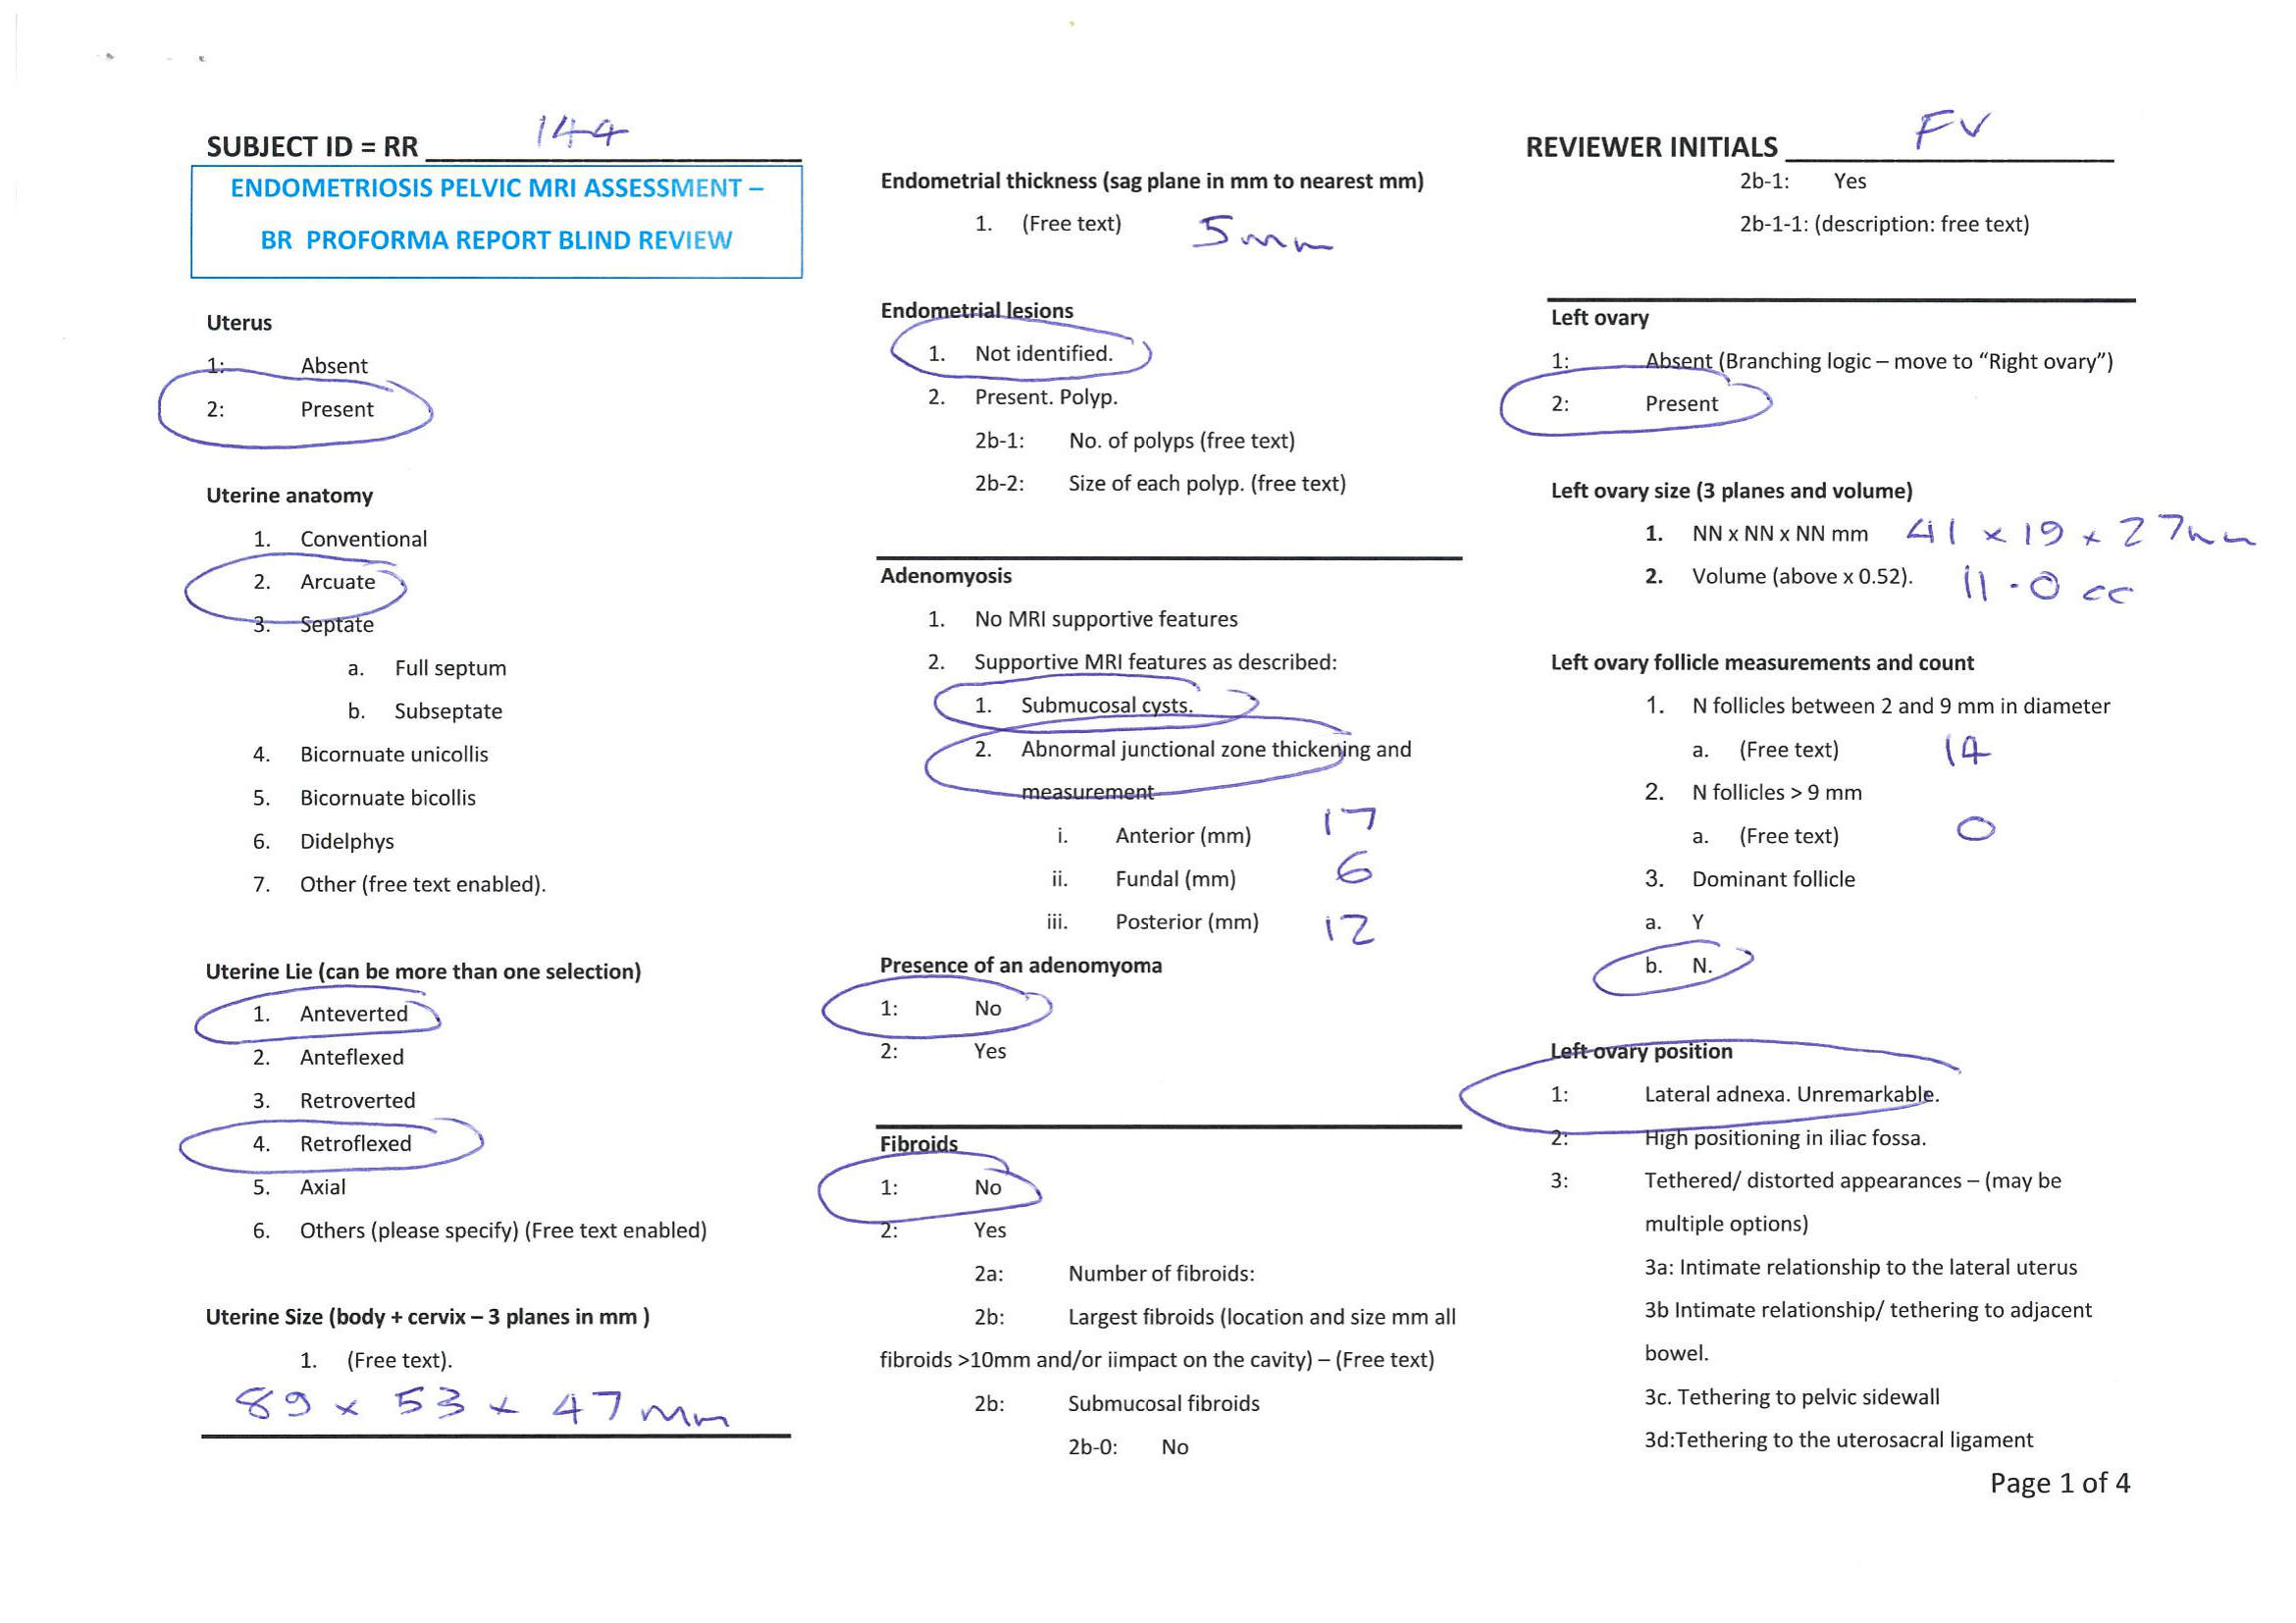 SUBJECT ID = RR 144
ENDOMETRIOSIS PELVIC MRI ASSESSMENT –
BR PROFORMA REPORT BLIND REVIEW
Uterus
1: Absent
2: Present
Uterine anatomy
1. Conventional
2. Arcuate
3. Septate
a. Full septum
b. Subseptate
4. Bicornuate unicollis
5. Bicornuate bicollis
6. Didelphys
7. Other (free text enabled).
Uterine Lie (can be more than one selection)
1. Anteverted
2. Anteflexed
3. Retroverted
4. Retroflexed
5. Axial
6. Others (please specify) (Free text enabled)
Uterine Size (body + cervix – 3 planes in mm )
1. (Free text).
89 x 53 x 47 mm
Endometrial thickness (sag plane in mm to nearest mm)
1. (Free text) 5mm
Endometrial lesions
1. Not identified.
2. Present. Polyp.
2b-1: No. of polyps (free text)
2b-2: Size of each polyp. (free text)
Adenomyosis
1. No MRI supportive features
2. Supportive MRI features as described:
1. Submucosal cysts.
2. Abnormal junctional zone thickening and
measurement
i. Anterior (mm) 17
ii. Fundal (mm) 6
iii. Posterior (mm) 12
Presence of an adenomyoma
1: No
2: Yes
Fibroids
1: No
2: Yes
2a: Number of fibroids:
2b: Largest fibroids (location and size mm all
fibroids >10mm and/or iimpact on the cavity) – (Free text)
2b: Submucosal fibroids
2b-0: No
REVIEWER INITIALS FV
2b-1: Yes
2b-1-1: (description: free text)
Left ovary
1: Absent (Branching logic – move to “Right ovary”)
2: Present
Left ovary size (3 planes and volume)
1. NN x NN x NN mm 41 x 19 x 27mm
2. Volume (above x 0.52). 11.0 cc
Left ovary follicle measurements and count
1. N follicles between 2 and 9 mm in diameter
a. (Free text) 14
2. N follicles > 9 mm
a. (Free text) 0
3. Dominant follicle
a. Y
b. N.
Left ovary position
1: Lateral adnexa. Unremarkable.
2: High positioning in iliac fossa.
3: Tethered/ distorted appearances – (may be
multiple options)
3a: Intimate relationship to the lateral uterus
3b Intimate relationship/ tethering to adjacent
bowel.
3c. Tethering to pelvic sidewall
3d:Tethering to the uterosacral ligament
Page 1 of 4